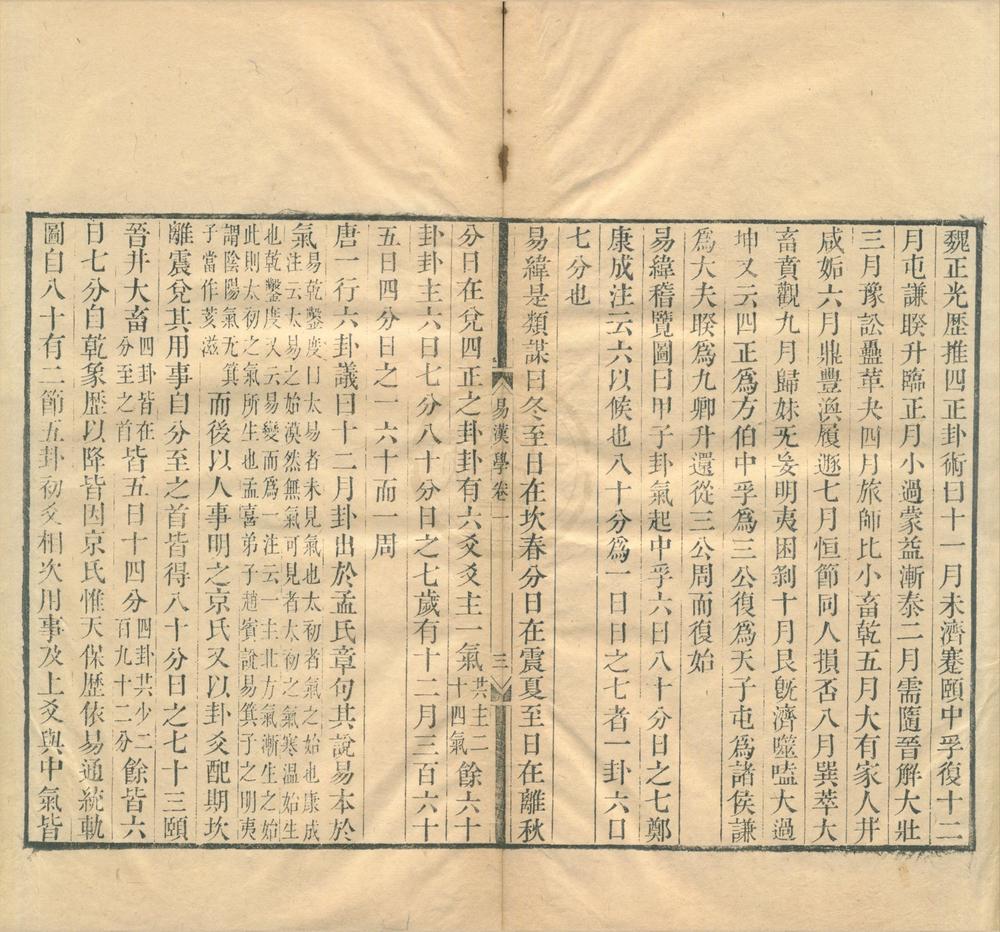 魏正光歷推四正卦術曰十一月未濟蹇頤中孚復十二
月屯謙睽升臨正月小過蒙益漸泰二月需隨晉解大壯
三月豫訟蠱革夬四月旅師比小畜乾五月大有家人井
咸姤六月鼎豐渙履遯七月恒節同人損否八月巽萃大
畜賁觀九月歸妹无妄明夷困剝十月艮旣濟噬嗑大過
坤又云四正爲方伯中孚爲三公復爲天子屯爲諸侯謙
爲大夫睽爲九卿升還從三公周而復始
易緯稽覽圖曰甲子卦氣起中孚六日八十分日之七鄭
康成注云六以候也八十分爲一日日之七者一卦六日
七分也
易緯是類謀曰冬至日在坎春分日在震夏至日在離秋
易漢學卷一
三
分日在兌四正之卦卦有六爻爻主一氣共主二十四氣餘六十
卦卦主六日七分八十分日之七歲有十二月三百六十
五日四分日之一六十而一周
唐一行六卦議曰十二月卦出於孟氏章句其說易本於
氣易乾鑿度曰太易者未見氣也太初者氣之始也康成
注云太易之始漠然無氣可見者太初之氣寒溫始生
也乾鑿度又云易變而爲一注云一主北方氣漸生之始
此則太初之氣所生也孟喜弟子趙賓說易箕子之明夷
謂陰陽氣无箕
子當作荄滋而後以人事明之京氏又以卦爻配期坎
離震兌其用事自分至之首皆得八十分日之七十三頤
晉井大畜四卦皆在分至之首皆五日十四分四卦共少二百九十二分餘皆六
日七分自乾象歷以降皆因京氏惟天保歷依易通統軌
圖自八十有二節五卦初爻相次用事及上爻與中氣皆